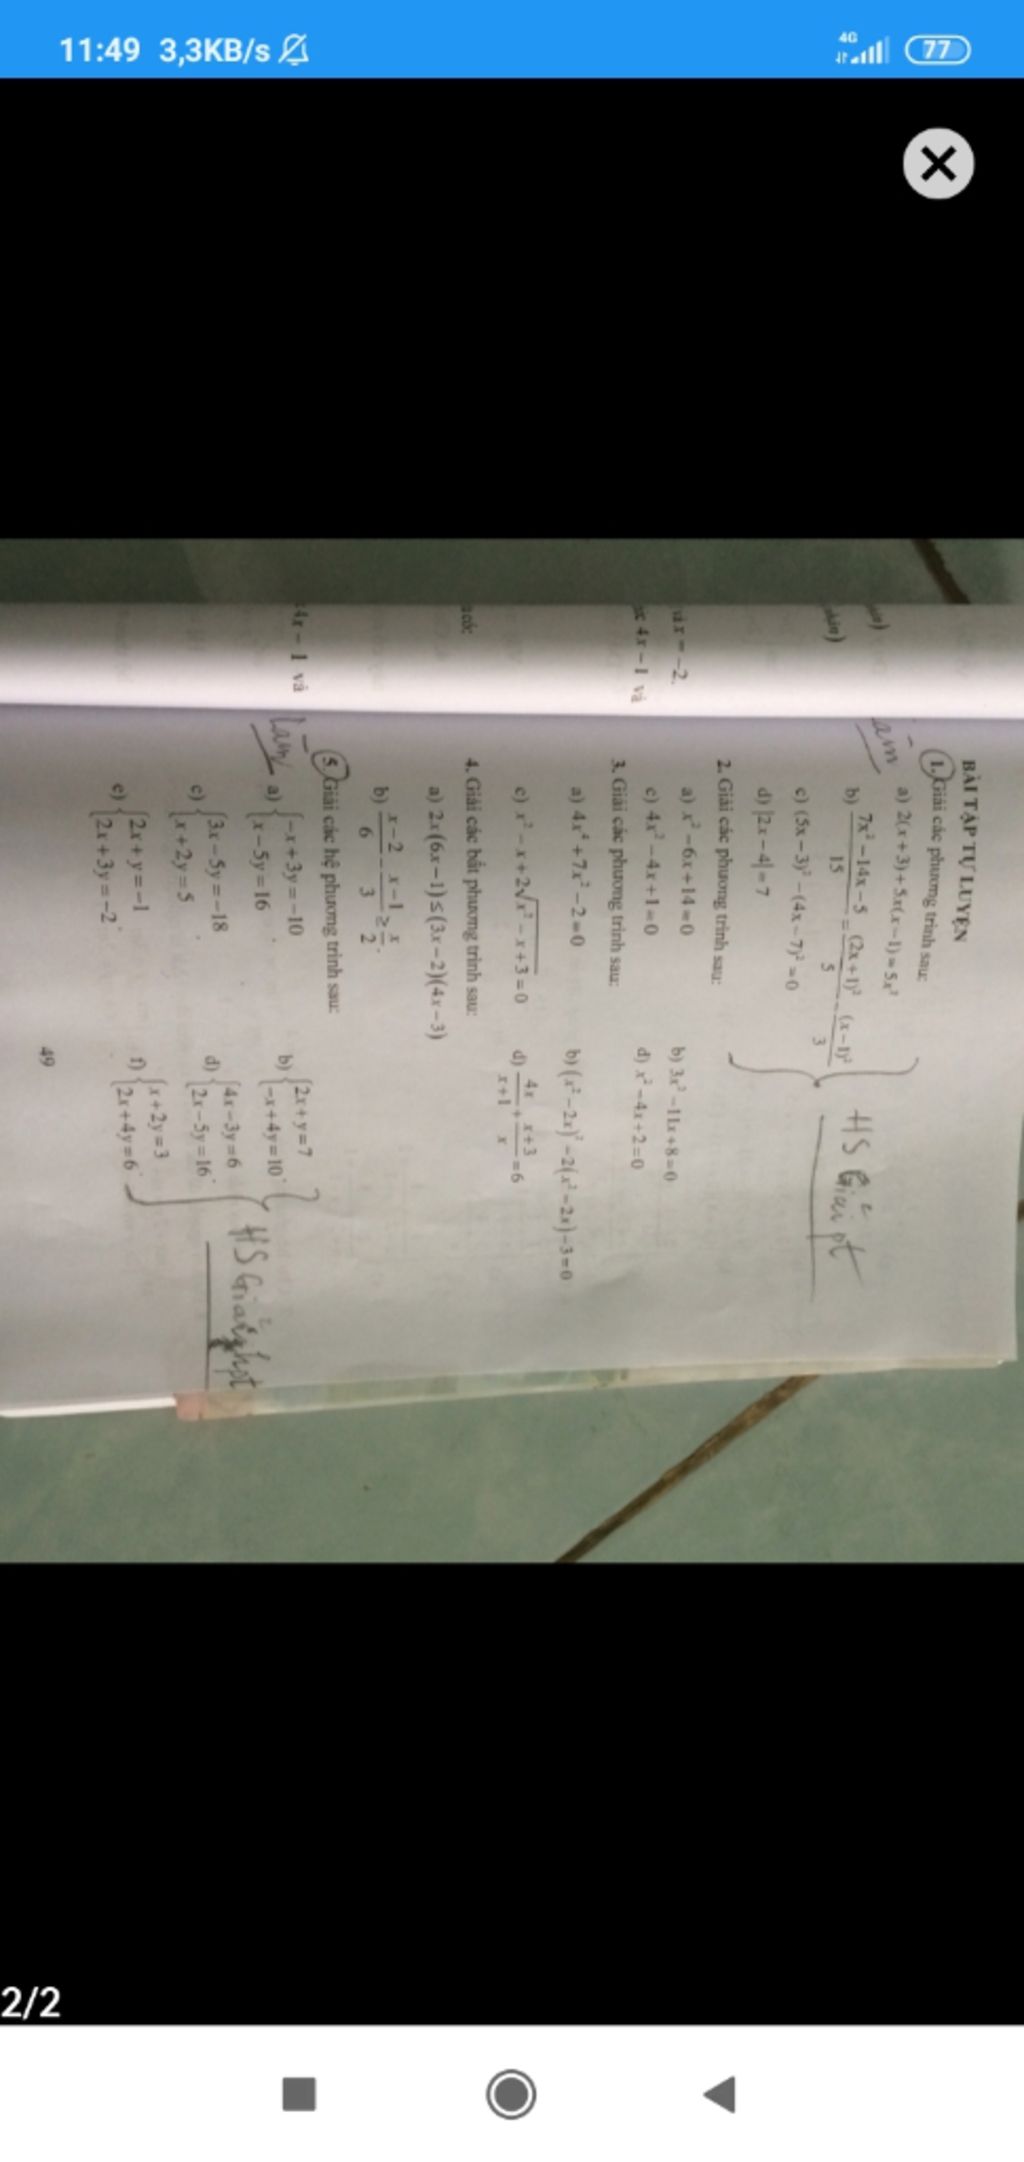 11:49 3,3KB/s 4G 77
BÀI TẬP TỰ LUYỆN
Làm
1. Giải các phương trình sau:
a) 2(x+3)+5x(x−1)=5x²
b) (7x²−14x−5)/15 = (2x+1)²/5 − (x−1)²/3
c) (5x−3)²−(4x−7)²=0
d) |2x−4|=7
HS Giải pt
2. Giải các phương trình sau:
a) x²−6x+14=0 b) 3x²−11x+8=0
c) 4x²−4x+1=0 d) x²−4x+2=0
3. Giải các phương trình sau:
a) 4x⁴+7x²−2=0 b) (x²−2x)²−2(x²−2x)−3=0
c) x²−x+2√(x²−x+3)=0 d) 4x/(x+1) + (x+3)/x = 6
4. Giải các bất phương trình sau:
a) 2x(6x−1)≤(3x−2)(4x−3)
b) (x−2)/6 − (x−1)/3 ≥ x/2.
5. Giải các hệ phương trình sau:
Làm
a) { −x+3y=−10
x−5y=16 .
b) { 2x+y=7
−x+4y=10 .
c) { 3x−5y=−18
x+2y=5 .
d) { 4x−3y=6
2x−5y=16 .
e) { 2x+y=−1
2x+3y=−2 .
f) { x+2y=3
2x+4y=6 .
HS Giải hpt
49
và x = −2.
4x − 1 và
có:
4x − 1 và
2/2